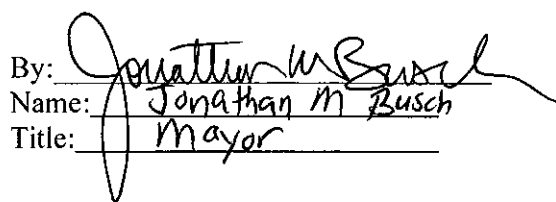 By: Jonathan M Busch
Name: Jonathan M Busch
Title: Mayor